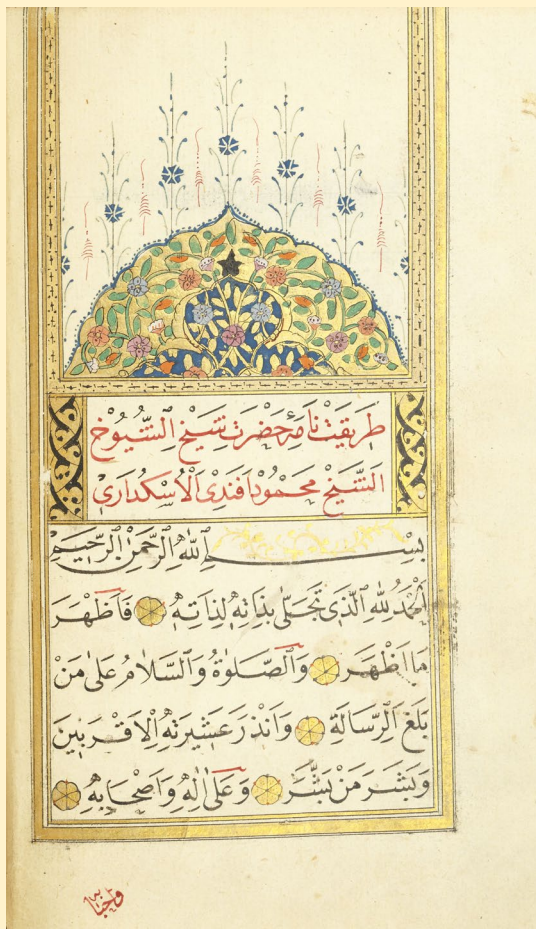 طَرِيقَتْ نَامَهٔ حَضْرَتِ شَيْخِ الشُّيُوخْ
اَلشَّيْخْ مَحْمُودْ اَفَنْدِى اَلْاُسْكُدَارِى
بِسْمِ اللّٰهِ الرَّحْمٰنِ الرَّحِيمِ
اَلْحَمْدُ لِلّٰهِ الَّذِى تَجَلّٰى بِذَاتِهِ لِذَاتِهِ فَاَظْهَرَ
مَا اَظْهَرَ وَالصَّلٰوةُ وَالسَّلَامُ عَلٰى مَنْ
بَلَغَ الرِّسَالَةَ وَاَنْذَرَ عَشِيرَتَهُ الْاَقْرَبِينَ
وَبَشَّرَ مَنْ بَشَّرَ وَعَلٰى اٰلِهِ وَاَصْحَابِهِ